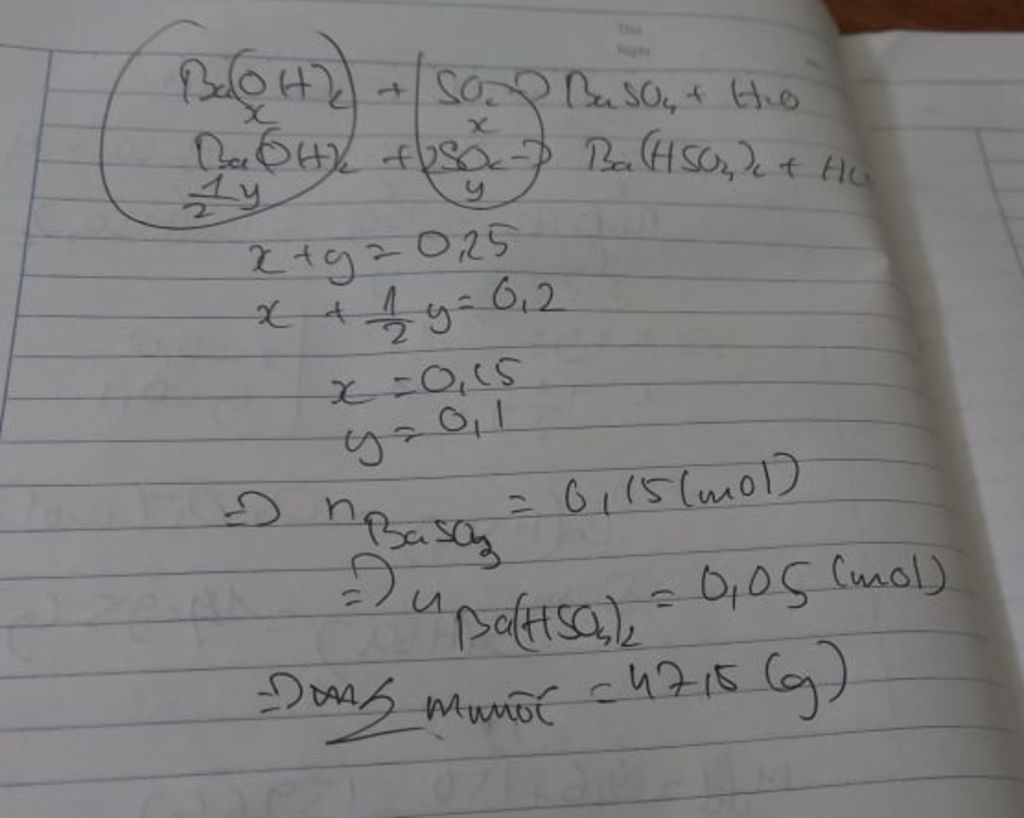 Ba(OH)₂ + SO₂ → BaSO₃ + H₂O
x x
Ba(OH)₂ + 2SO₂ → Ba(HSO₃)₂
1/2 y y
x + y = 0,25
x + 1/2 y = 0,2
x = 0,15
y = 0,1
=> n BaSO₃ = 0,15 (mol)
=> n Ba(HSO₃)₂ = 0,05 (mol)
=> m muối = 47,5 (g)